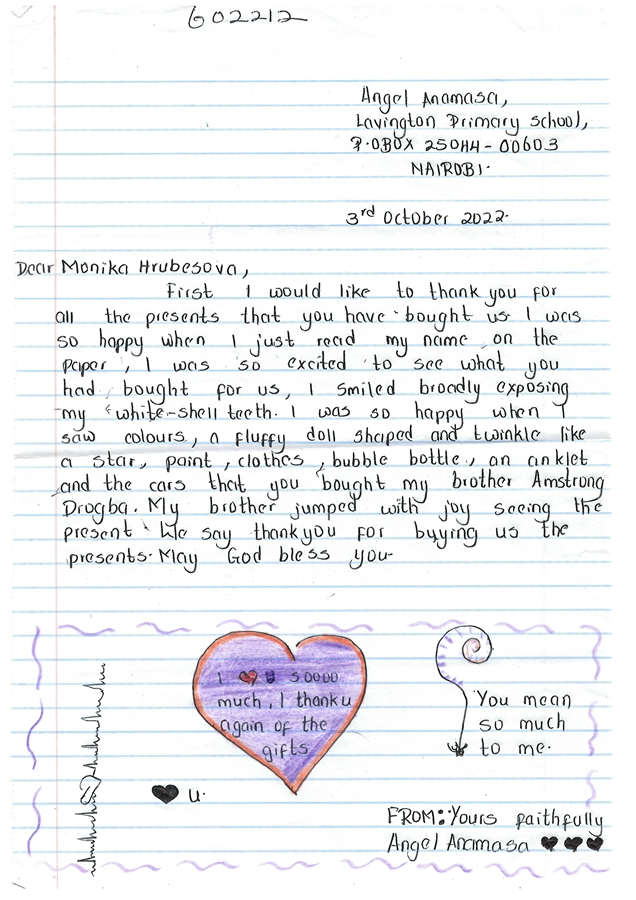 602212
Angel Anamasa,
Lavington Primary school,
P.OBOX 25044-00603
NAIROBI.
3rd October 2022.
Dear Monika Hrubesova,
First I would like to thank you for
all the presents that you have bought us I was
so happy when I just read my name on the
paper, I was so excited to see what you
had bought for us, I smiled broadly exposing
my white-shell teeth. I was so happy when I
saw colours, a fluffy doll shaped and twinkle like
a star, paint, clothes, bubble bottle, an anklet
and the cars that you bought my brother Amstrong
Drogba. My brother jumped with joy seeing the
present. We say thankyou for buying us the
presents. May God bless you.
I ❤ U soooo
much, I thank u
again of the
gifts
You mean
so much
to me.
♥ u.
FROM: Yours faithfully
Angel Anamasa ♥♥♥